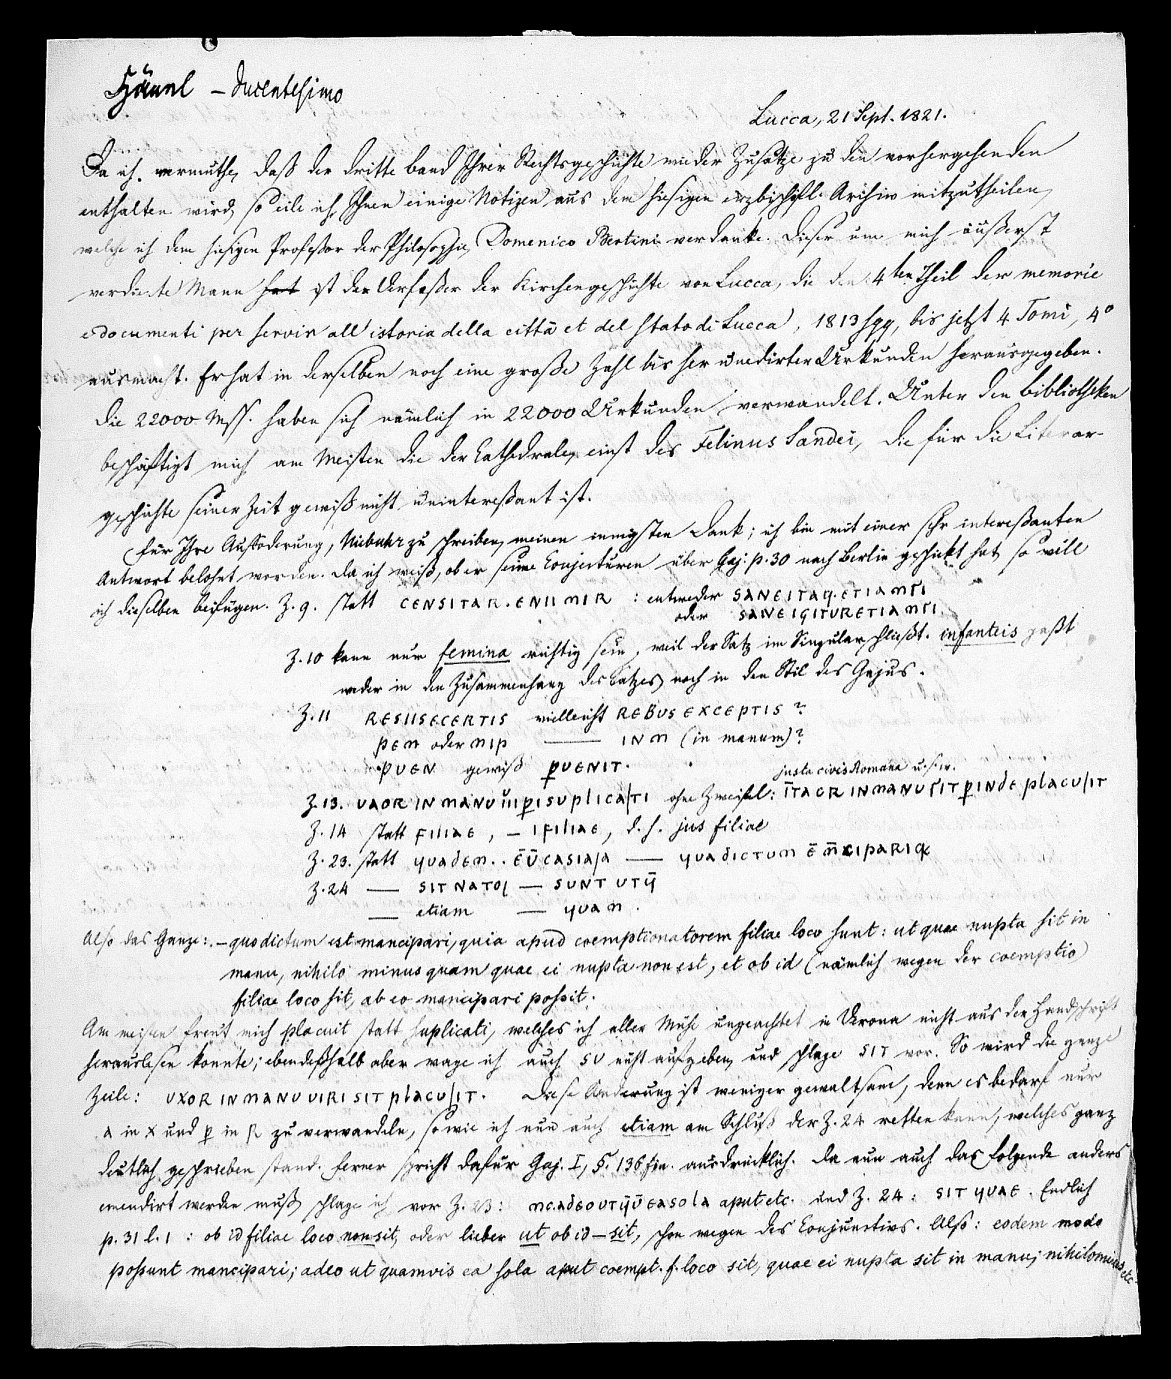 Hänel – ducentesimo
Lucca, 21 Sept. 1821.
Da ich vermuthe, daß der dritte band Ihrer Rechtsgeschichte wieder Zusätze zu den vorhergehenden
enthalten wird, so eile ich, Ihnen einige Notizen aus dem hiesigen erzbischöfl. Archiv mitzutheilen,
welche ich dem hiesigen Professor der Philosophie, Domenico Bertini verdanke. Dieser um mich äußerst
verdiente Mann hat ist der Verfasser der Kirchengeschichte von Lucca, die den 4ten Theil der memorie
e documenti per servir all istoria della città et del stato di Lucca, 1813 sqq, bis jetzt 4 Tomi, 4°
ausmacht. Er hat in derselben noch eine große Zahl bisher unedirter Urkunden herausgegeben.
Die 22000 Mss. haben sich nämlich in 22000 Urkunden verwandelt. Unter den Bibliotheken
beschäftigt mich am Meisten die der Cathedrale, einst des Felinus Sandei, die für die Literar-
geschichte seiner Zeit gewiß nicht uninteressant ist.
Für Ihre Aufforderung, Niebuhr zu schreiben, meinen innigsten Dank; ich bin mit einer sehr interessanten
Antwort belohnt worden. Da ich weiß, ob er seine Conjecturen über Gaj. p. 30 nach Berlin geschickt hat, so will
ich dieselben beifügen. Z. 9. statt CENSITAR. ENIIMIR : entweder SANEITAQ. ETIAMSI
oder SANEIGITURETIAMSI.
Z. 10 kann nur femina richtig sein, weil der Satz im Singular schließt. infantis paßt
weder in den Zusammenhang des Satzes noch in den Stil des Gajus.
Z. 11 RESIISECERTIS vielleicht REBUS EXCEPTIS ?
PEM oder MIP —— INM (in manum)?
PUEN gewiß PUENIT.
justa civis Romana u.s.w.
Z. 13. UAOR IN MANU IIIPISUPLICATI ohne Zweifel: ITAGR IN MANU SIT PINDE PLACUIT
Z. 14 statt FILIAE, – IFILIAE, d. h. jus filiae
Z. 23. statt QUADEM.. EUCASIAIA —— QUADICTUM E MCIPARIQ
Z. 24 —— SIT NATOI — SUNT UTQ
—— etiam —— QUAM.
Also das Ganze: – quo dictum est mancipari, quia apud coemptionatorem filiae loco sunt: ut quae nupta sit in
manu, nihilo minus quam quae ei nupta non est, et ob id (nämlich wegen der coemptio)
filiae loco sit, ab eo mancipari possit.
Am meisten freut mich placuit statt suplicati, welches ich aller Mühe ungeachtet in Verona nicht aus der Handschrift
herauslesen konnte; ebendeßhalb aber wage ich auch SU nicht aufgeben, und schlage SIT vor. So wird die ganze
Zeile: UXOR IN MANU VIRI SIT PLACUIT. Diese Änderung ist weniger gewaltsam, denn es bedarf nur
A in X und P in R zu verwandeln, sowie ich nun auch etiam am Schluß der Z. 24 retten kann, welches ganz
deutlich geschrieben stand. Ferner spricht dafür Gaj. I, §. 136 fin. ausdrücklich. Da nun auch das folgende anders
emendirt werden muß, schlage ich vor Z. 23: MC. ADEOUTQUEASOLA aput etc. und Z. 24: SIT QUAE. Endlich
p. 31 l. 1 : ob id filiae loco non sit, oder lieber ut ob id – sit, schon wegen des Conjunctivs. Also: eodem modo
possunt mancipari; adeo ut quamvis ea sola aput coempt. f. loco sit, quae ei nupta sit in manu, nihilominus etc.